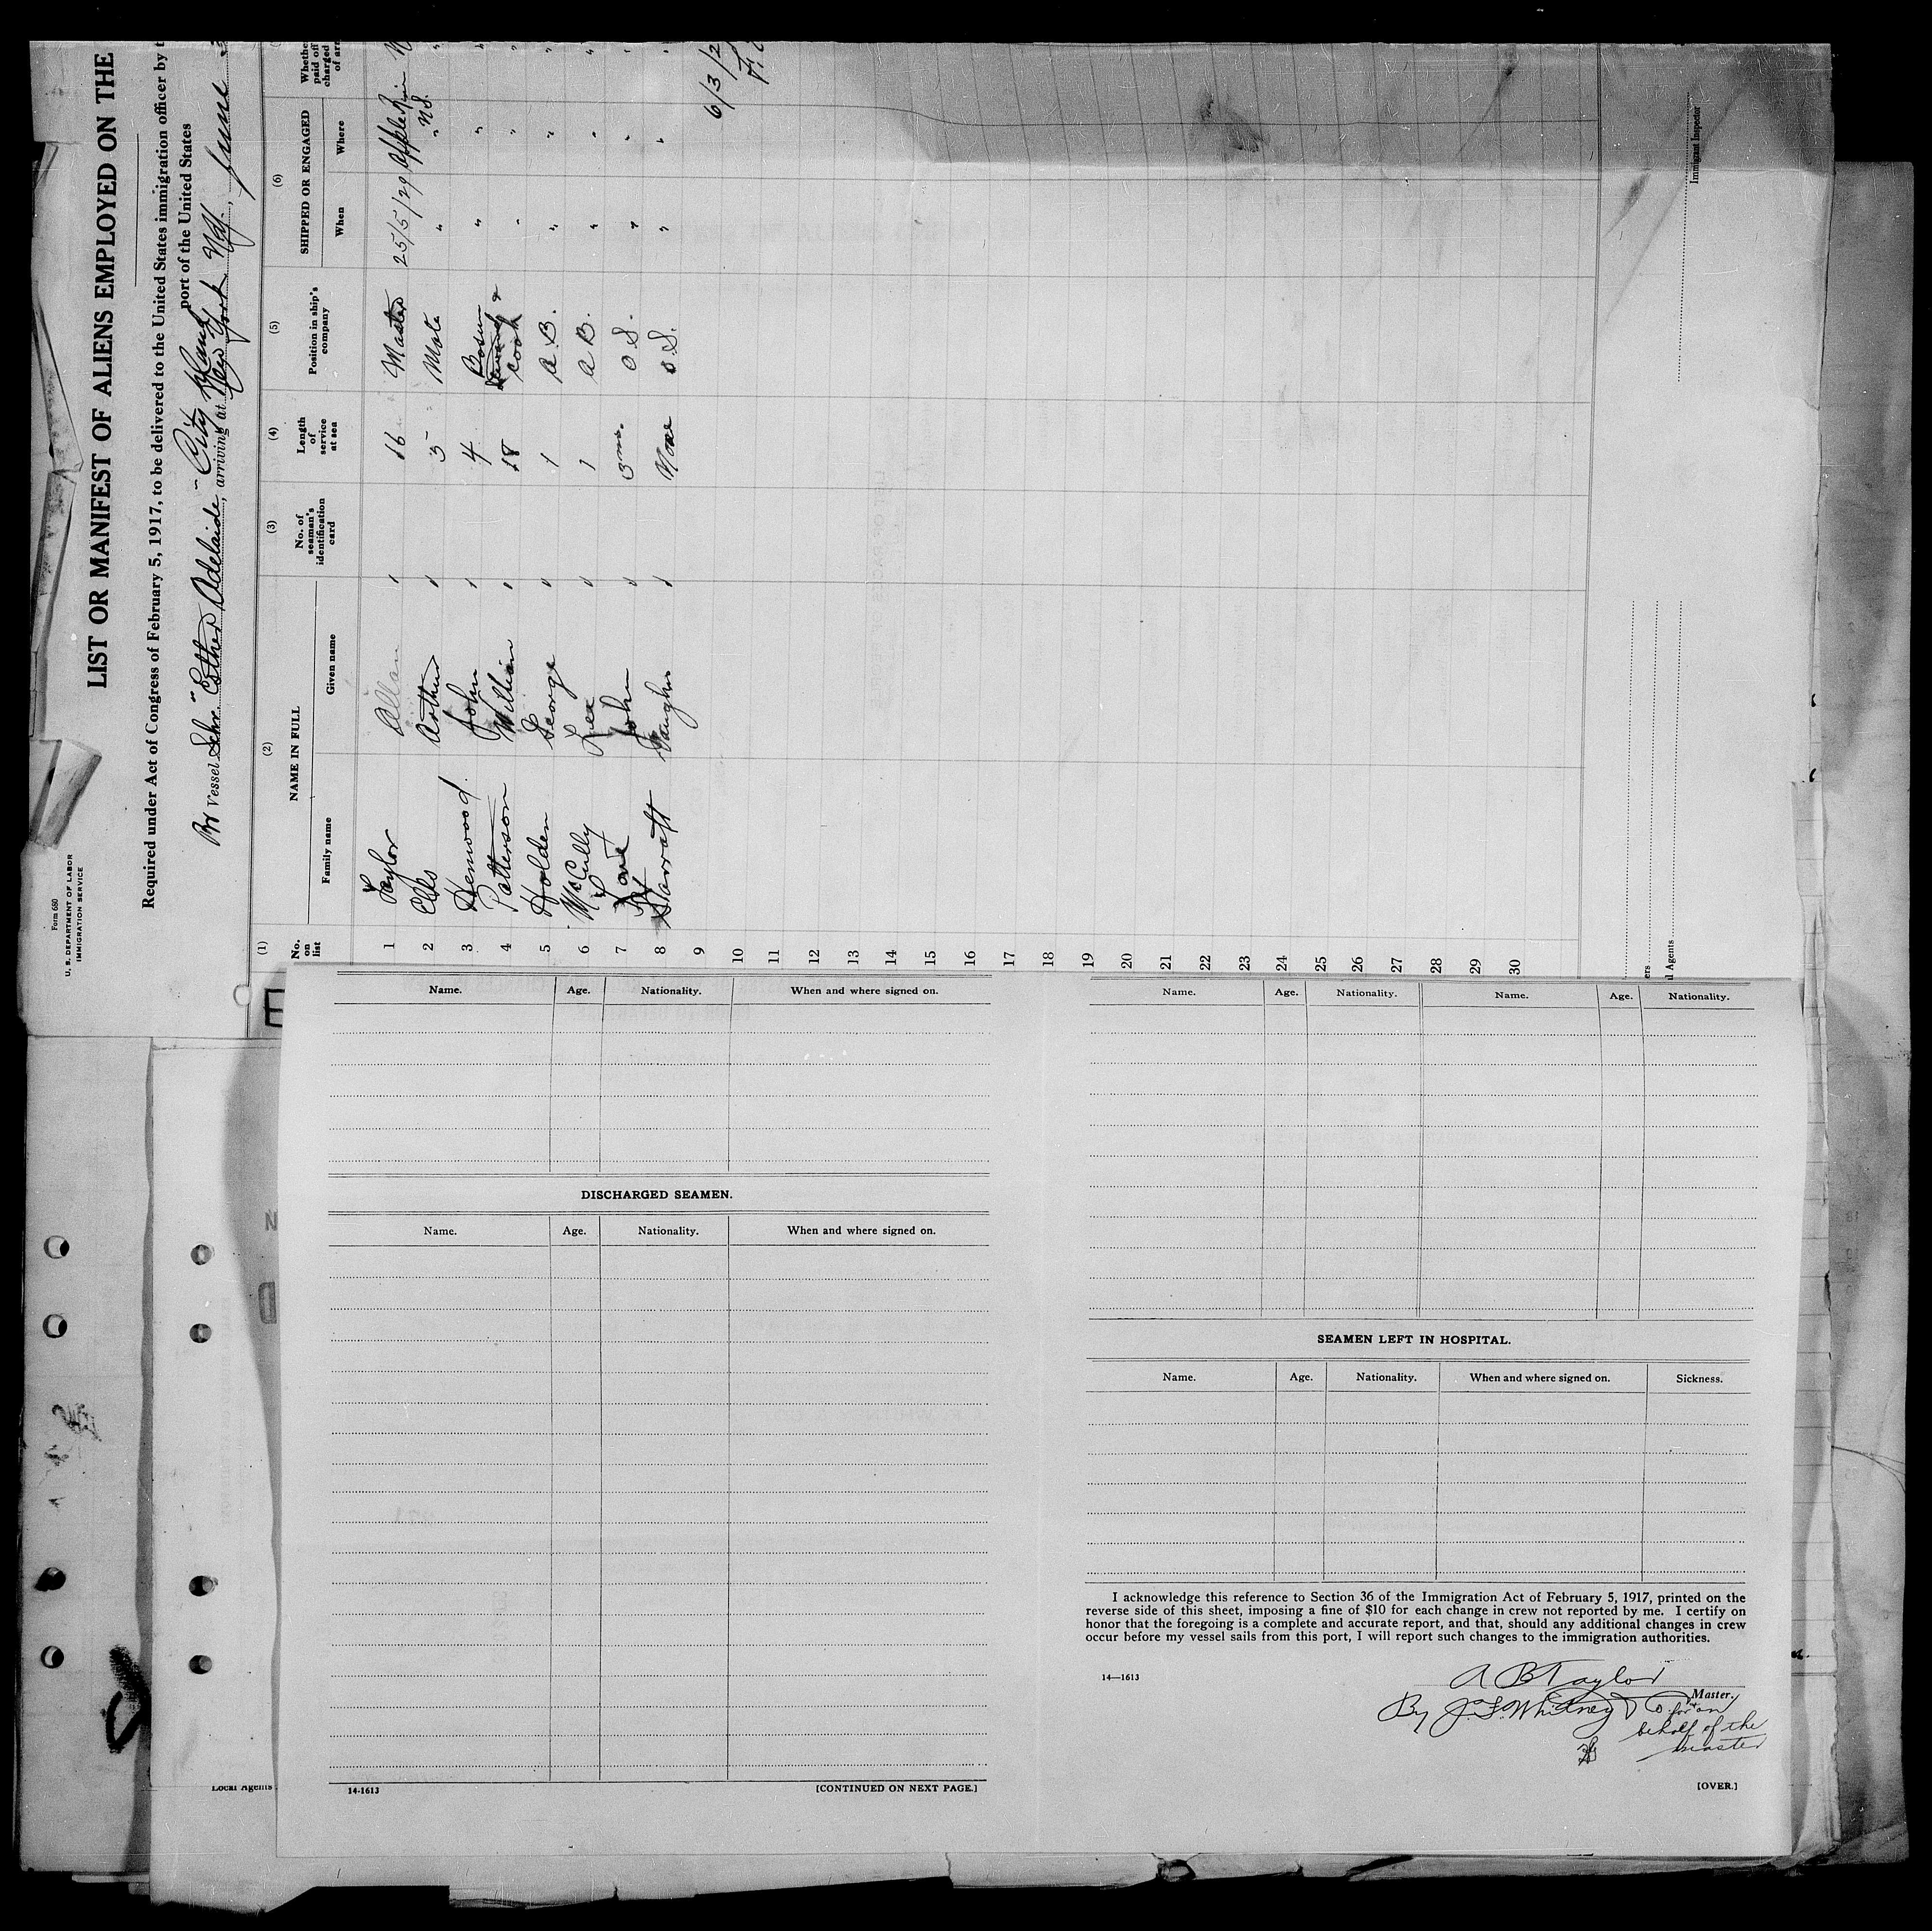 Form 680
U. S. DEPARTMENT OF LABOR
IMMIGRATION SERVICE
LIST OR MANIFEST OF ALIENS EMPLOYED ON THE
Required under Act of Congress of February 5, 1917, to be delivered to the United States immigration officer by t
port of the United States
Br Vessel Schr. "Esther Adelaide" - City Island
arriving at New York N.Y., June 3
(1) (2) (3) (4) (5) (6)
No. on list
NAME IN FULL
Family name Given name
No. of seaman's identification card
Length of service at sea
Position in ship's company
SHIPPED OR ENGAGED
When Where
Whethe
paid off
charged
of arr
1 Taylor Allan 16 Master 25/5/29 Apple River N.S.
2 Ells Arthur 5 Mate " "
3 Henwood John 4 Bosun " "
4 Patterson William 18 Steward & Cook " "
5 Holden George 1 A.B. " "
6 McCully Lea 1 A B. " "
7 John 3 mo. O S. " "
8 Starratt Vaughn None O S. " "
9
10
11
12
13
14
15
16
17
18
19
20
21
22
23
24
25
26
27
28
29
30
6/3/2
ers
l Agents
Immigrant Inspector
Name. Age. Nationality. When and where signed on.
DISCHARGED SEAMEN.
Name. Age. Nationality. When and where signed on.
14-1613
[CONTINUED ON NEXT PAGE.]
Name. Age. Nationality. Name. Age. Nationality.
SEAMEN LEFT IN HOSPITAL.
Name. Age. Nationality. When and where signed on. Sickness.
I acknowledge this reference to Section 36 of the Immigration Act of February 5, 1917, printed on the
reverse side of this sheet, imposing a fine of $10 for each change in crew not reported by me. I certify on
honor that the foregoing is a complete and accurate report, and that, should any additional changes in crew
occur before my vessel sails from this port, I will report such changes to the immigration authorities.
14—1613
A B Taylor
Master.
By J. F. Whitney & Co for + on
behalf of the
master
[OVER.]
Local Agents